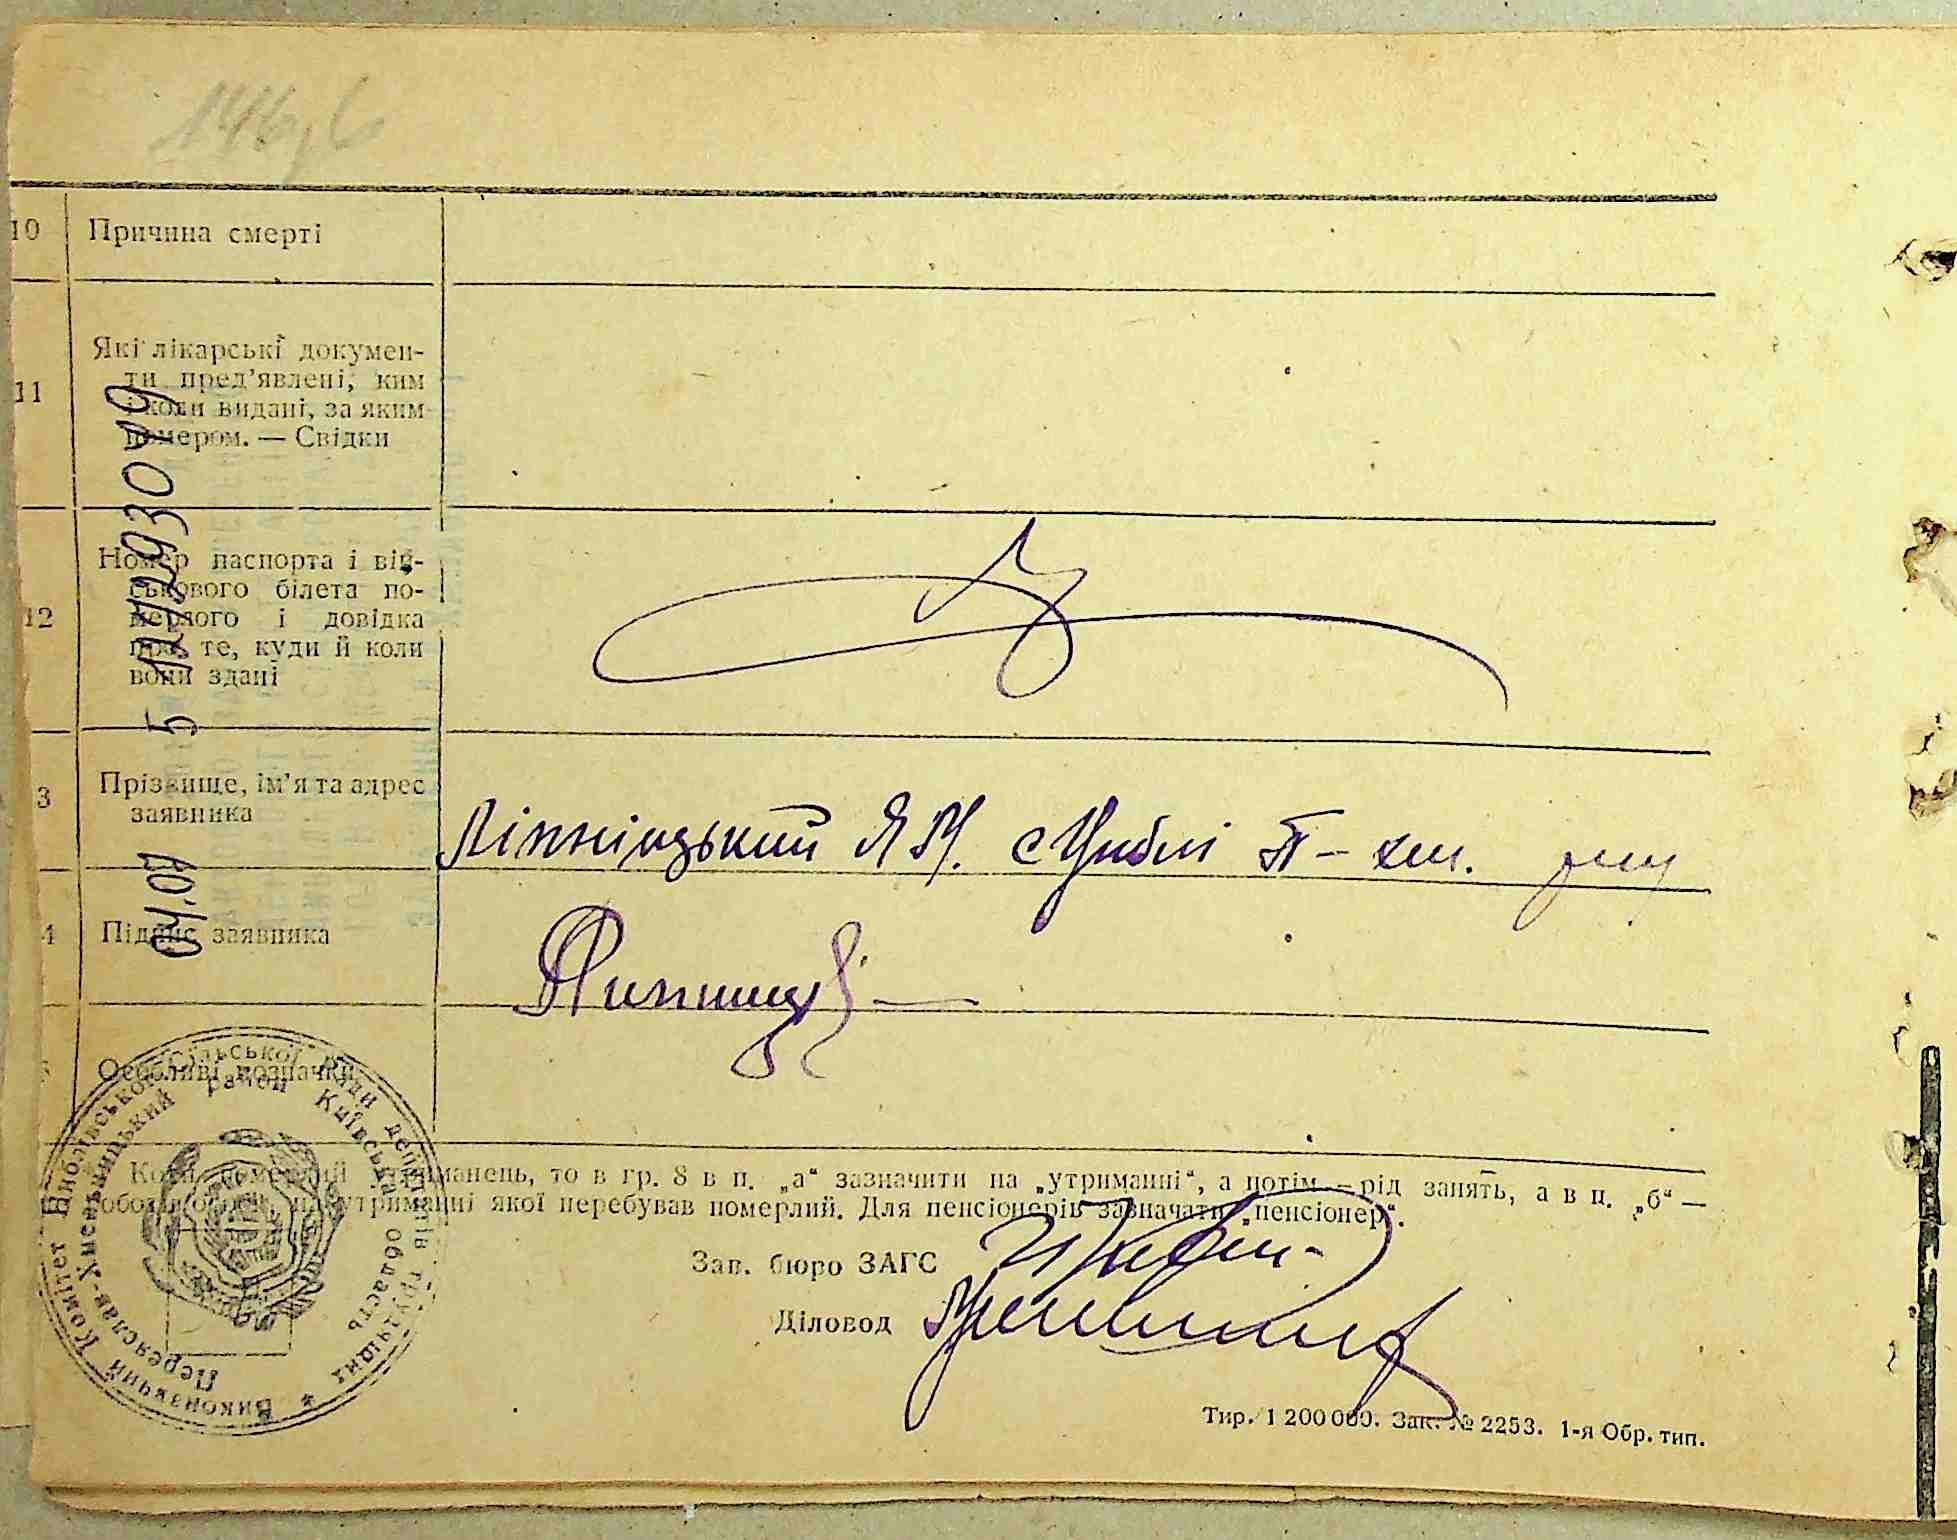 10 Причина смерті
11 Які лікарські докумен-
ти пред’явлені, ким
і коли видані, за яким
номером. — Свідки
12 Номер паспорта і вій-
ськового білета по-
мерлого і довідка
про те, куди й коли
вони здані
3 Прізвище, ім’я та адрес
заявника
Ліпніцький Я М. с Циблі П-хм.
4 Підпис заявника
Особливі позначки
Коли померлий утриманець, то в гр. 8 в п. „а“ зазначити на „утриманні“, а потім — рід занять, а в п. „б“ —
особи, на утриманні якої перебував померлий. Для пенсіонерів зазначати „пенсіонер“.
Зав. бюро ЗАГС
Діловод
Тир. 1 200 000. Зак. № 2253. 1-я Обр. тип.
Виконавчий Комітет Циблівської Сільської Ради депутатів трудящих
Переяслав-Хмельницький район Київська область